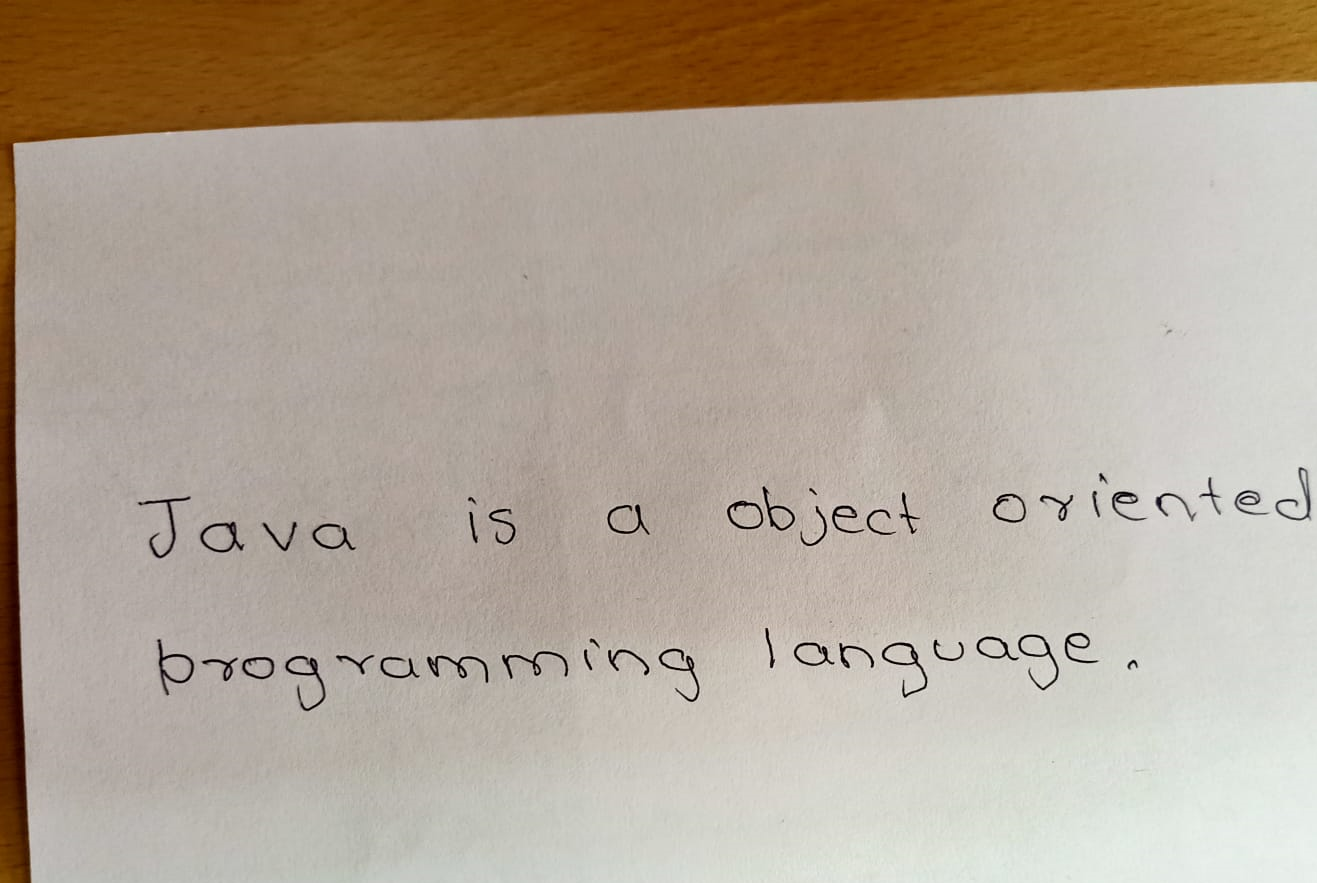 Java is a object oriented
programming language.